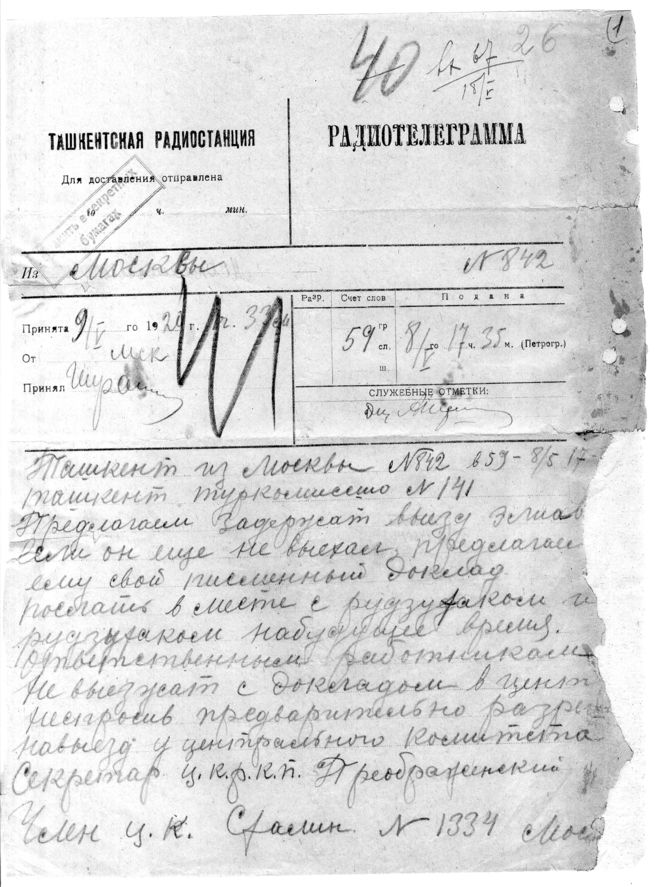 40 вх 67 26
18/V
ТАШКЕНТСКАЯ РАДИОСТАНЦИЯ
РАДИОТЕЛЕГРАММА
Для доставления отправлена
ч. мин.
секретных
бумагах
Из Москвы N 842
Принята 9/V го 1920 г. ч. 33
От Мск
Принял
Разр. Счет слов Подана
59 гр сл. ш. 8/V го 17 ч. 35 м. (Петрогр.)
СЛУЖЕБНЫЕ ОТМЕТКИ:
Ташкент из Москвы N842 в 59 - 8/5 17-
ташкент туркомиссию N 141
Предлагаем задержат выезд Элиав
если он еще не выехал, предлагаем
ему свой писменный доклад
послать в месте с рудзутаком и
рудзутаком набудущее время.
ответственным работникам
не выезжат с докладом в цент
неспросив предварительно разре
навыезд у центрального комитета
Секретар ц.к.р.к.п. Преображенский
Член ц.к. Сталин. N 1334 Моск